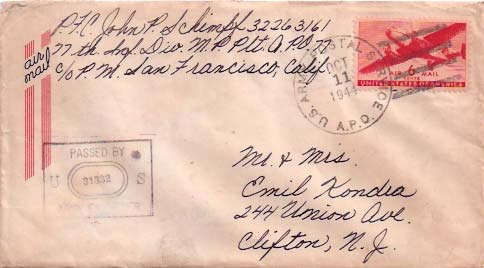 P.F.C. John P. Schimpf 32263161
77th Inf. Div. M.P. Plt. A.P.O. 77
c/o P.M. San Francisco, Calif
air mail
U.S. ARMY POSTAL SERVICE
OCT
11
1944
A.P.O.
AIR 6 MAIL
CENTS
UNITED STATES OF AMERICA
PASSED BY
U 31332 S
Mr. & Mrs.
Emil Kondra
244 Union Ave.
Clifton, N.J.